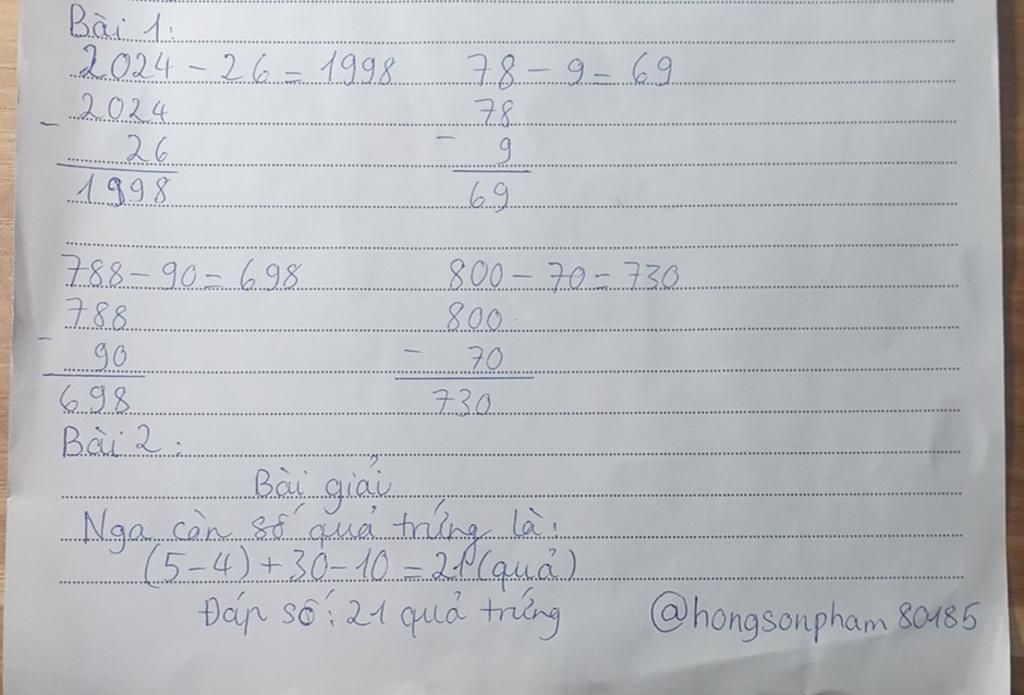 Bài 1:
2024 - 26 = 1998 78 - 9 = 69
2024 78
- 26 - 9
1998 69
788 - 90 = 698 800 - 70 = 730
788 800
- 90 - 70
698 730
Bài 2:
Bài giải
Nga còn số quả trứng là:
(5-4) + 30 - 10 = 21 (quả)
Đáp số: 21 quả trứng @hongsonpham 80185